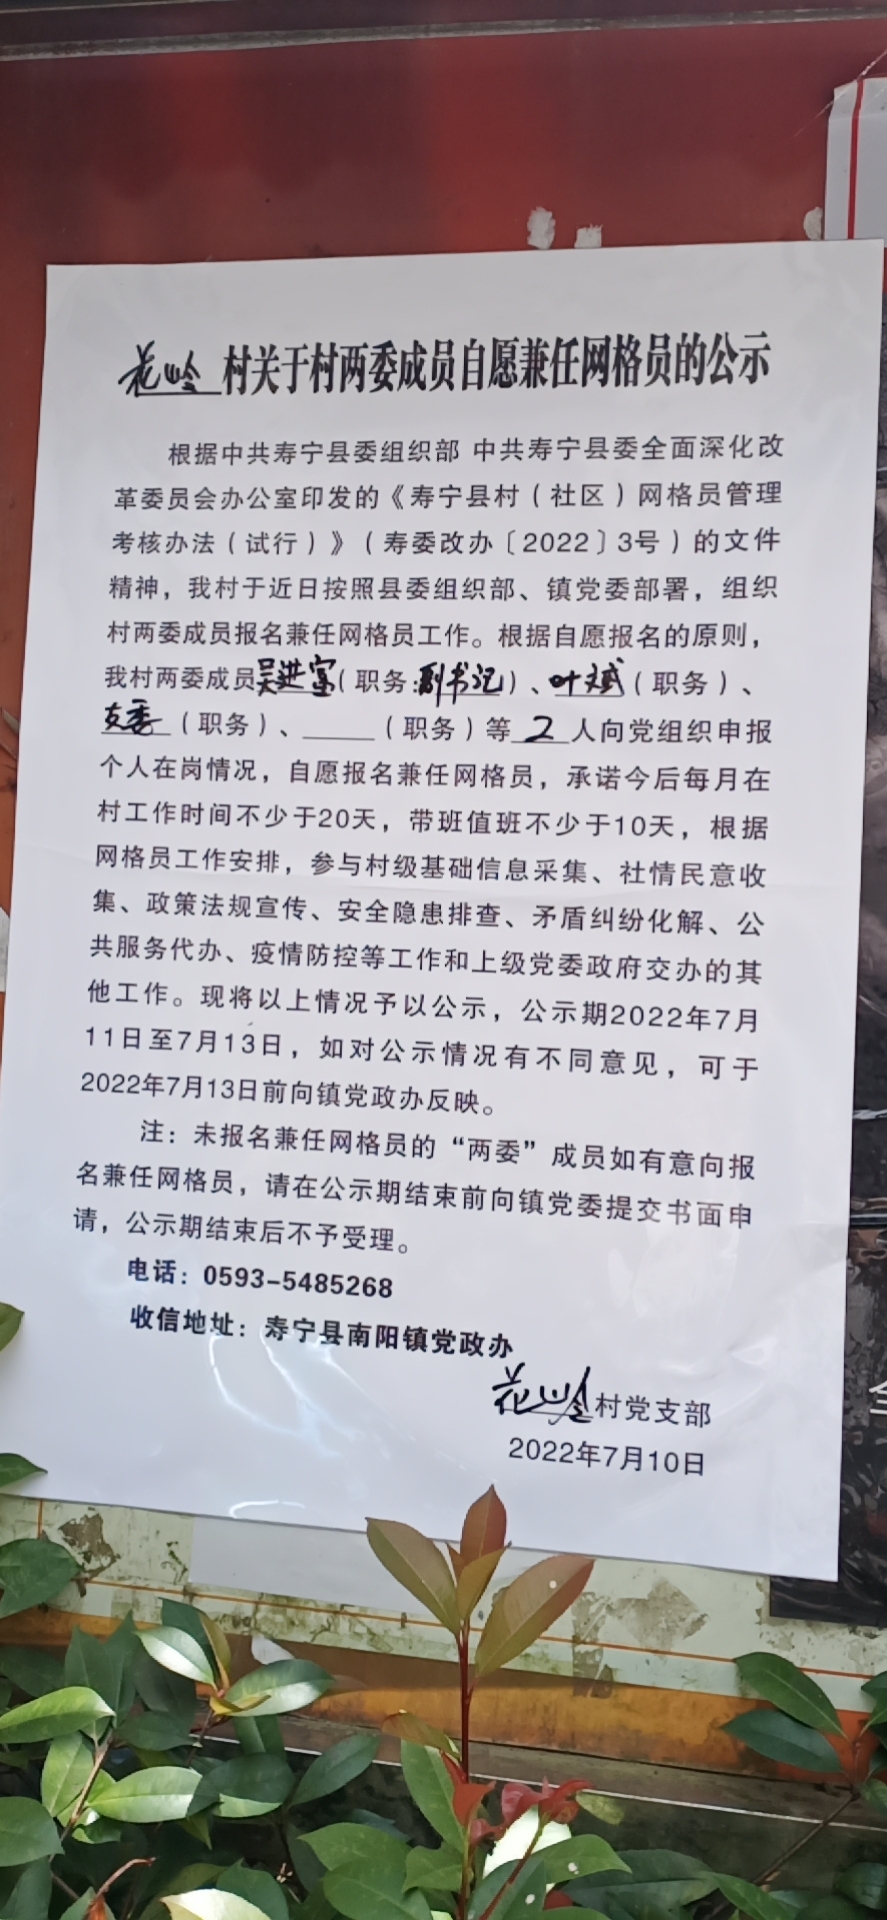 花岭村关于村两委成员自愿兼任网格员的公示
根据中共寿宁县委组织部 中共寿宁县委全面深化改
革委员会办公室印发的《寿宁县村（社区）网格员管理
考核办法（试行）》（寿委改办〔2022〕3号）的文件
精神，我村于近日按照县委组织部、镇党委部署，组织
村两委成员报名兼任网格员工作。根据自愿报名的原则，
我村两委成员吴进富（职务:副书记）、叶斌（职务）、
支委（职务）、_____（职务）等2人向党组织申报
个人在岗情况，自愿报名兼任网格员，承诺今后每月在
村工作时间不少于20天，带班值班不少于10天，根据
网格员工作安排，参与村级基础信息采集、社情民意收
集、政策法规宣传、安全隐患排查、矛盾纠纷化解、公
共服务代办、疫情防控等工作和上级党委政府交办的其
他工作。现将以上情况予以公示，公示期2022年7月
11日至7月13日，如对公示情况有不同意见，可于
2022年7月13日前向镇党政办反映。
注：未报名兼任网格员的“两委”成员如有意向报
名兼任网格员，请在公示期结束前向镇党委提交书面申
请，公示期结束后不予受理。
电话：0593-5485268
收信地址：寿宁县南阳镇党政办
花岭村党支部
2022年7月10日